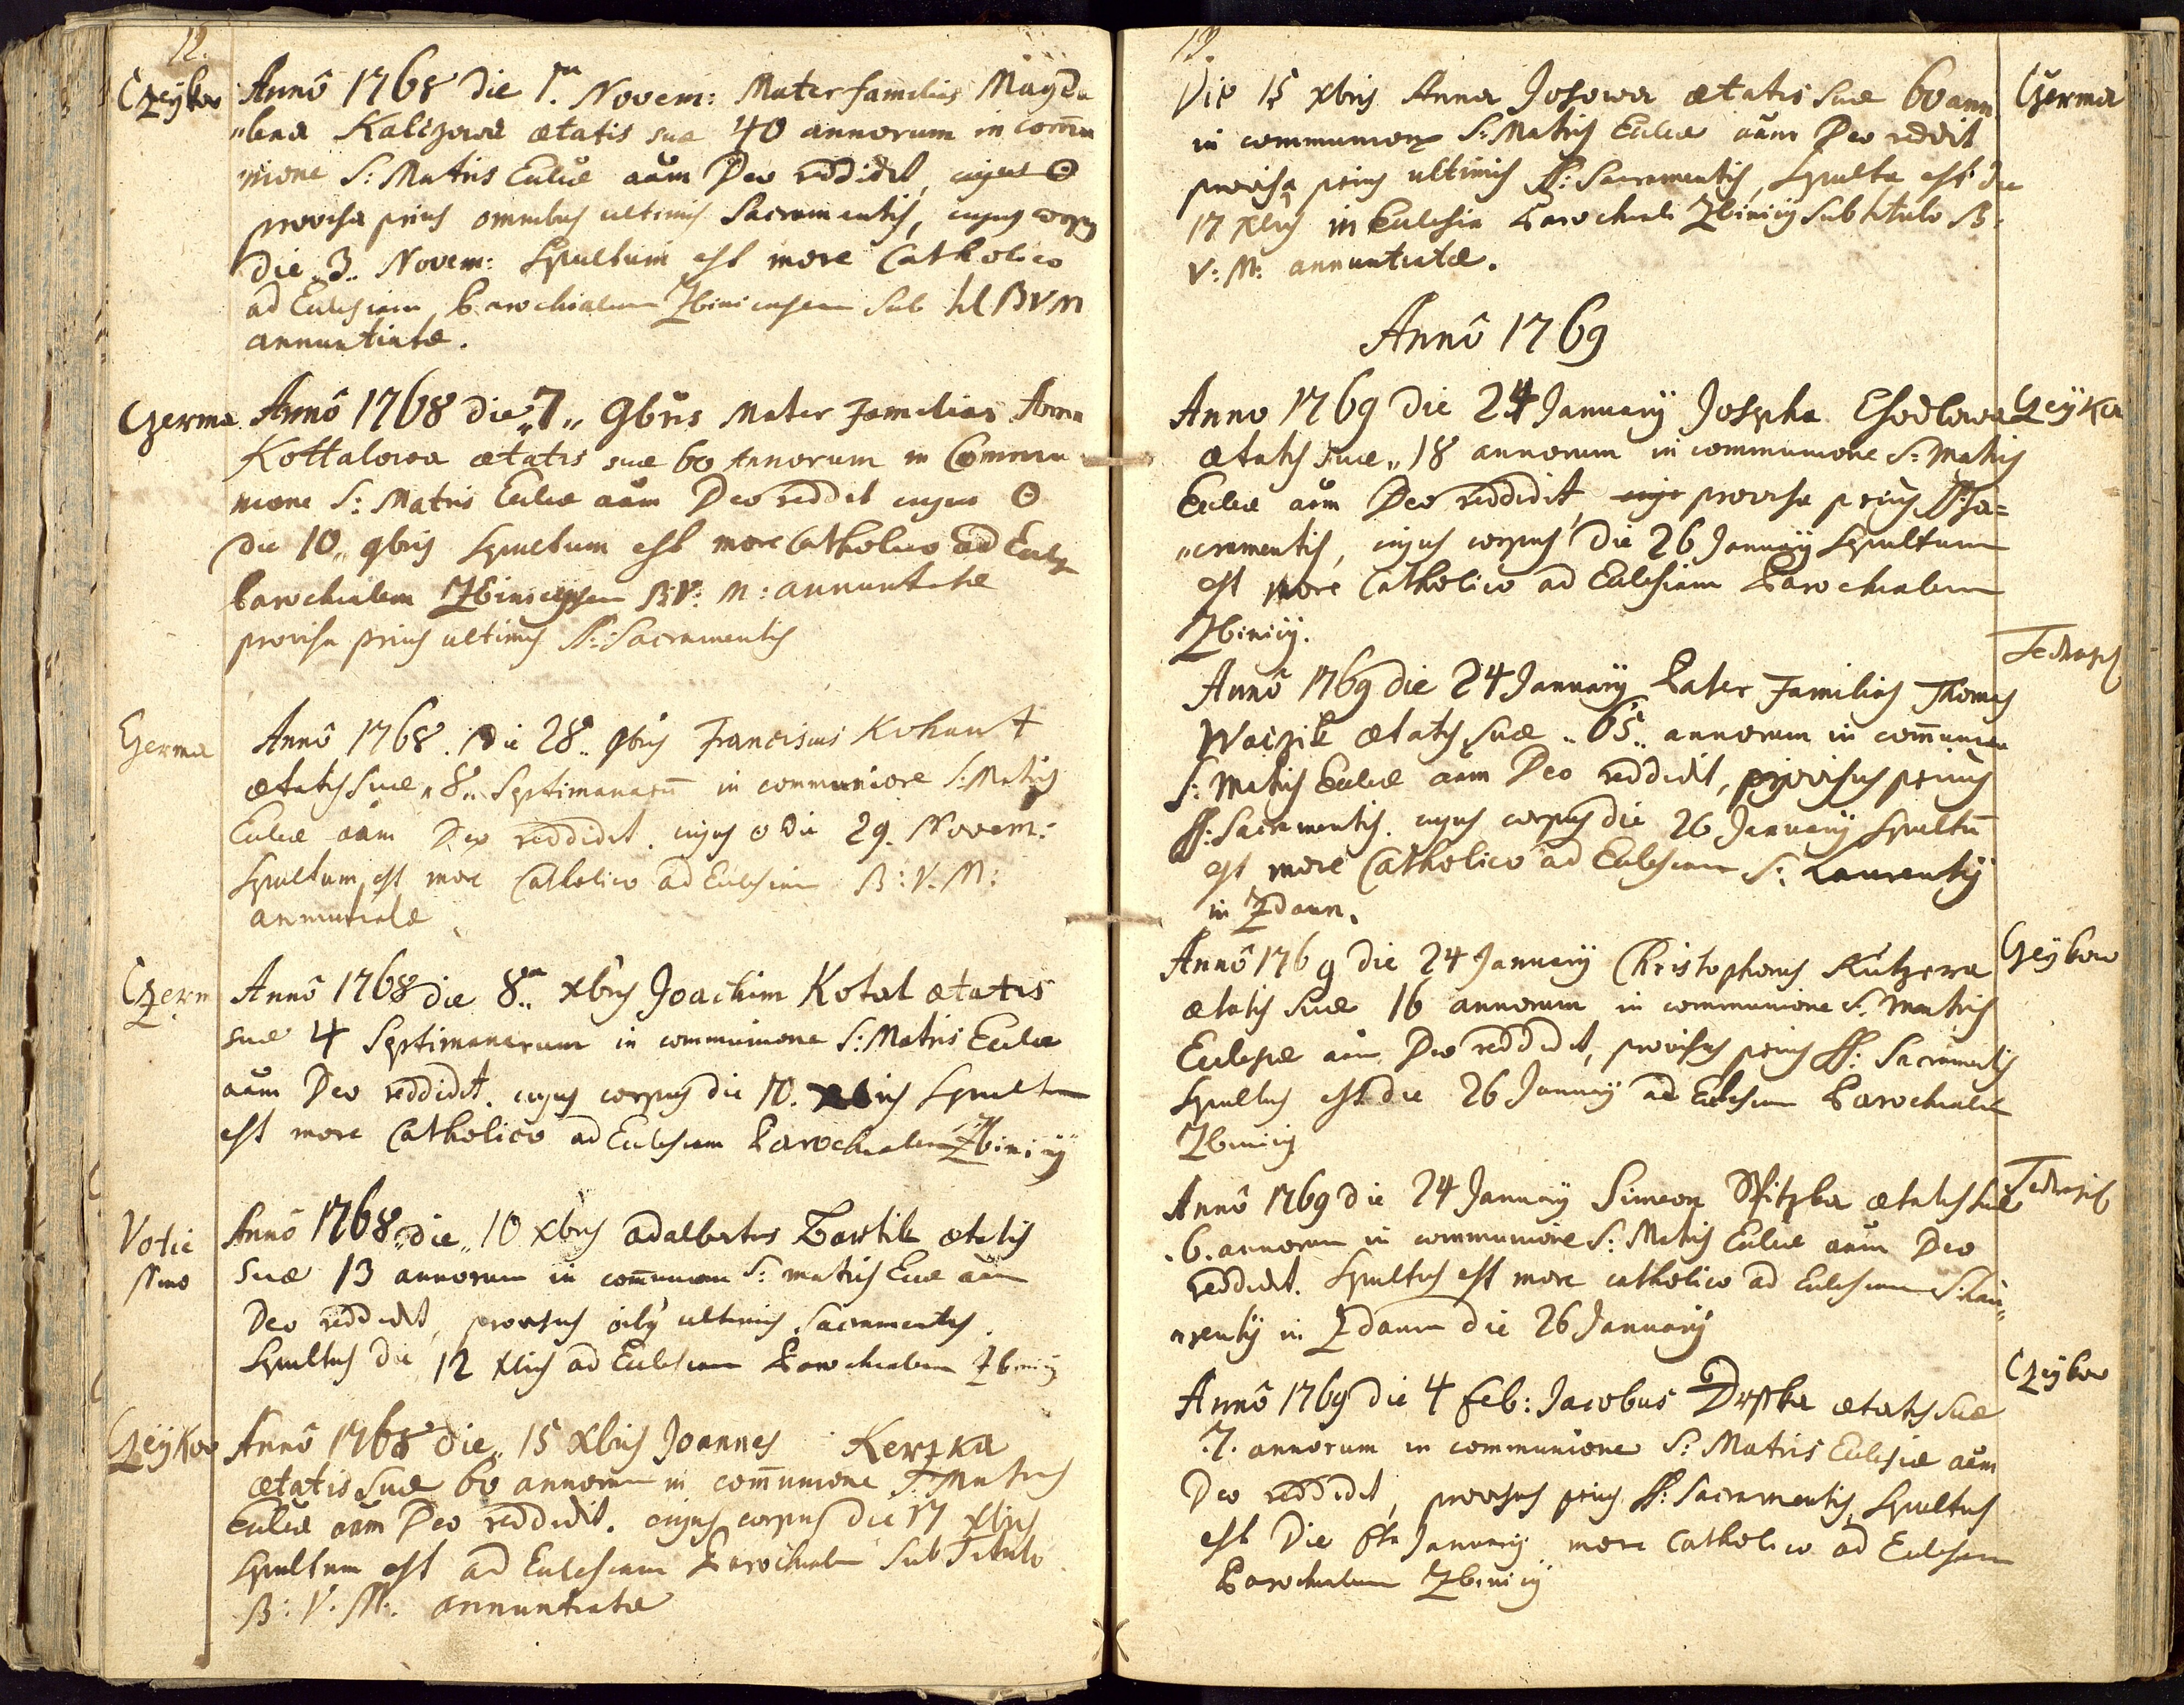 12.
Czeykov Annô 1768 die 1.ma Novem: Mater familias Magda
"lena Kalizova ætatis suæ 40 annorum in com̄u
nione S: Matris Eccliæ aām Deo reddidit, cujus ⊙
provisa prius omnibus ultimis Sacramentis, cujus corpus
die 3.. Novem: Sepultum est more Catholico
ad Ecclesiam Parochialem Zbinicensem Sub tit BVM
annuntiatæ.
Czerma Annô 1768 die "7" 9bris Mater Familias Anna
Kottalowa ætatis suæ 60 Annorum in Commu
nione S: Matris Eccliæ aām Deo reddit cujus ⊙
die 10" 9bris Sepultum est more Catholico ad Eccle
Parochialem Zbinicensem B:V: M: annuntiatæ
provisa prius ultimis SS: Sacramentis
Czerma Annô 1768. Die 28.. 9bris Franciscus Kohaut
ætatis suæ "8" Septimanarū in communione S: Matris
Eccliæ aām Deo reddidit. cujus ⊙ die 29. Novem:
Sepultum est more Catholico ad Ecclesiam B: V: M:
annuntiatæ
Czerm Annô 1768 die 8.va xbris Joachim Kotal ætatis
suæ 4 Septimanarum in communione S: Matris Eccliæ
aām Deo reddidit. cujus corpus die 10. xbris Sepultum
est more Catholico ad Ecclesiam Parochialem Zbinicÿ
Votie
ssmo
Annô 1768 "die" 10 xbris adalbertus Bartik ætatis
suæ 13 annorum in com̄unione S: matris Eccæ aām
Deo reddidit, provisus oib9 ultimis Sacramentis.
Sepultus die 12 xbris ad Ecclesiam Parochialem Zbinicÿ
Czeÿkov Annô 1768 die" 15 xbris Joannes Kerzka
ætatis suæ 60 annorum in com̄unione S: Matris
Eccliæ aām Deo reddidit. cujus corpus die 17 xbris
Sepultum est ad Ecclesiam Parochialem Sub Titulo
B: V: M: annuntiatæ
13.
Die 15 xbris Anna Josowa ætatis suæ 60 ann Czerma
in communione S: Matris Eccliæ aām Deo reddit
provisa prius ultimis SS: Sacramentis, Sepulta est die
17 xbris in Ecclesia Parochiali Zbinicÿ Sub titulo B:
V: M: annuntiatæ.
Annô 1769
Anno 1769 die 24 Januarÿ Josepha Chodlowa Czeÿkov
ætatis suæ "18 annorum in communione S: Matris
Eccliæ aām Deo reddidit, cujus provisa prius SS: Sa=
"cramentis, cujus corpus die 26 Januarÿ Sepultum
est more Catholico ad Ecclesiam Parochialem
Zbinicÿ.
Jedrasch
Annô 1769 die 24 Januarÿ Pater Familias Thomas
Waczik ætatis suæ "65" annorum in com̄unione
S: Matris Eccliæ aām Deo reddidit, provisus prius
SS: Sacramentis. cujus corpus die 26 Januarÿ Sepultū
est more Catholico ad Ecclesiam S: Laurentÿ
in Zdaun.
Annô 1769 die 24 Januarÿ Christophorus Kutzera Czeykov
ætatis suæ 16 annorum in communione S: Matris
Ecclesiæ aām Deo reddidit, provisus prius SS: Sacramentis
Sepultus est die 26 Januarÿ ad Ecclesiam Parochialem
Zbinicÿ
Annô 1769 die 24 Januarÿ Simeon Spitzka ætatis suæ Jedrasch
.6. annorum in communione S: Matris Eccliæ aām Deo
reddidit. Sepultus est more catholico ad Ecclesiam S: Lau"
"rentÿ in Zdaun die 26 Januarÿ
Czeykov
Annô 1769 die 4 Feb: Jacobus Drska ætatis suæ
.7. annorum in communione S: Matris Ecclesiæ aām
Deo reddidit, provisus prius SS: Sacramentis, Sepultus
est Die 6ta Januarÿ more Catholico ad Ecclesiam
Parochialem Zbinicÿ